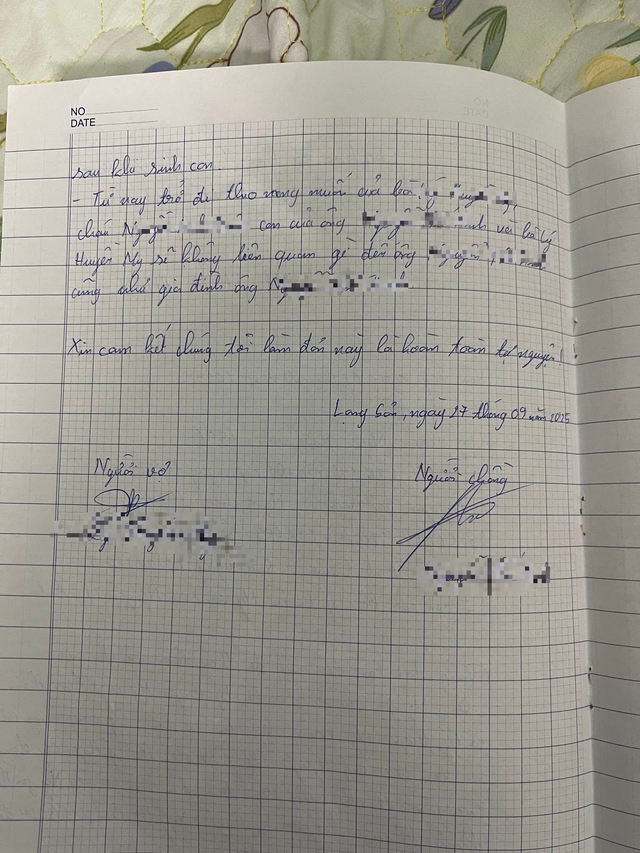 NO
DATE
sau khi sinh con.
- Từ nay trở đi theo mong muốn của bà
cháu con của ông và bà Lý
Huyền My sẽ không liên quan gì đến ông
cũng như gia đình ông
Xin cam kết chúng tôi làm đơn này là hoàn toàn tự nguyện!
Lạng Sơn, ngày 27 tháng 09 năm 2025
Người vợ
Người chồng